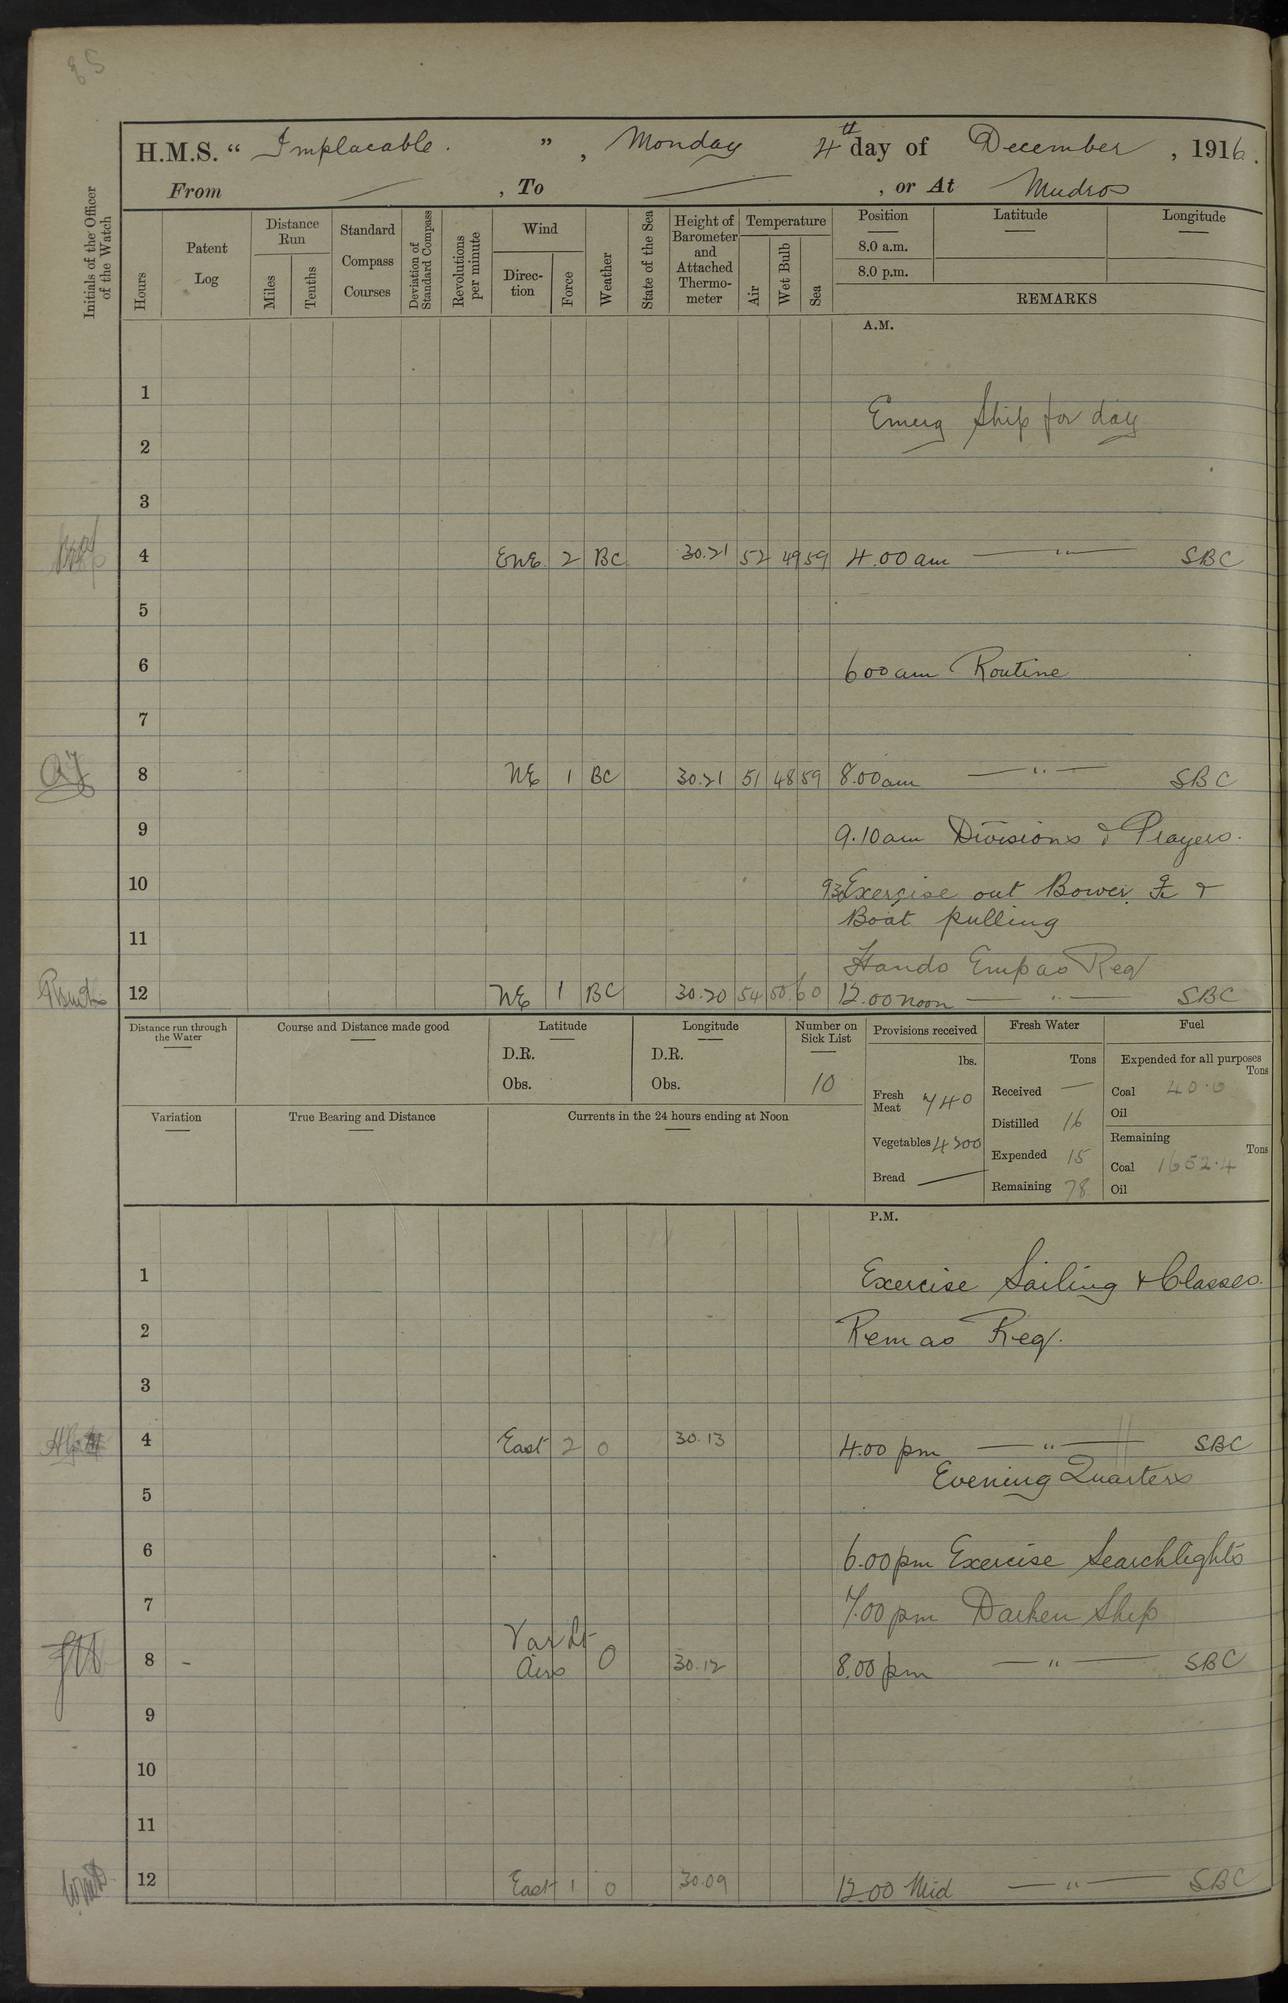 85
H.M.S. “ Implacable. ” , Monday 4th day of December , 1916.
From — , To — , or At Mudros
Initials of the Officer of the Watch
Hours
Patent Log
Distance Run
Miles
Tenths
Standard Compass Courses
Deviation of Standard Compass
Revolutions per minute
Wind
Direc-tion
Force
Weather
State of the Sea
Height of Barometer and Attached Thermo-meter
Temperature
Air
Wet Bulb
Sea
Position
Latitude
Longitude
8.0 a.m.
8.0 p.m.
REMARKS
A.M.
1
Emerg Ship for day
2
3
4 ENE 2 BC 30.21 52 49 59 4.00am — " — SBC
5
6 6 00am Routine
7
8 NE 1 BC 30.21 51 48 59 8.00am — " — SBC
9 9.10am Divisions & Prayers.
10 930 Exercise out Bower &
Boat pulling
11
Hands Emp as Req
12 NE 1 BC 30.20 54 50 60 12.00 noon — " — SBC
Distance run through the Water
Course and Distance made good
Latitude
D.R.
Obs.
Longitude
D.R.
Obs.
Number on Sick List
10
Provisions received
lbs.
Fresh Meat 740
Vegetables 4300
Bread —
Fresh Water
Tons
Received —
Distilled 16
Expended 15
Remaining 78
Fuel
Expended for all purposes
Tons
Coal 40.0
Oil
Remaining
Tons
Coal 1652.4
Oil
Variation
True Bearing and Distance
Currents in the 24 hours ending at Noon
P.M.
1 Exercise Sailing & Classes.
2 Rem as Req.
3
4 East 2 0 30.13 4.00 pm — " — SBC
Evening Quarters
5
6 6.00pm Exercise Searchlights
7 7.00 pm Darken Ship
8 - Var Lt Airs 0 30.12 8.00 pm — " — SBC
9
10
11
12 East 1 0 30.09 12.00 Mid — " — SBC